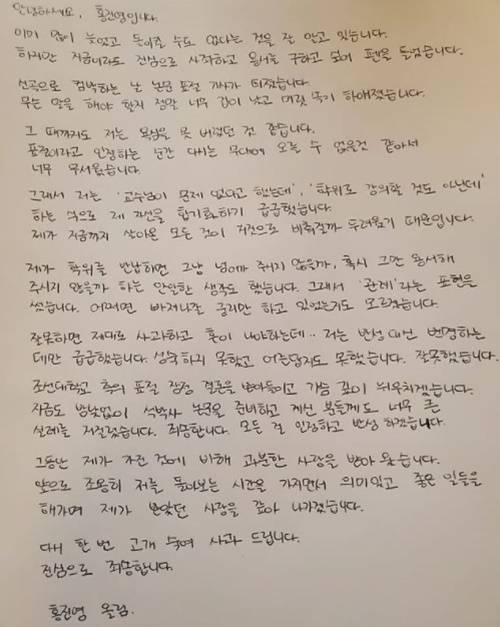 안녕하세요, 홍진영입니다.
이미 많이 늦었고 돌이킬 수도 없다는 것을 잘 알고 있습니다.
하지만 지금이라도 진심으로 사과하고 용서를 구하고 싶어 펜을 들었습니다.
신곡으로 컴백하는 날 논문 표절 기사가 터졌습니다.
무슨 말을 해야 할지 정말 너무 겁이 났고 머릿 속이 하얘졌습니다.
그 때까지도 저는 욕심을 못 버렸던 것 같습니다.
표절이라고 인정하는 순간 다시는 무대에 오를 수 없을것 같아서
너무 무서웠습니다.
그래서 저는 '교수님이 문제 없다고 했는데', '학위로 강의할 것도 아닌데'
하는 식으로 제 자신을 합리화하기 급급했습니다.
제가 지금까지 살아온 모든 것이 거짓으로 비춰질까 두려웠기 때문입니다.
제가 학위를 반납하면 그냥 넘어가 주시지 않을까, 혹시 그만 용서해
주시지 않을까 하는 안일한 생각도 했습니다. 그래서 '관례'라는 표현을
썼습니다. 어쩌면 빠져나갈 궁리만 하고 있었는지도 모르겠습니다.
잘못하면 제대로 사과하고 혼이 나야하는데.. 저는 반성 대신 변명하는
데만 급급했습니다. 성숙하지 못했고 어른답지도 못했습니다. 잘못했습니다.
조선대학교 측의 표절 잠정 결론을 받아들이고 가슴 깊이 뉘우치겠습니다.
지금도 밤낮없이 석박사 논문을 준비하고 계신 분들께도 너무 큰
실례를 저질렀습니다. 죄송합니다. 모든 걸 인정하고 반성 하겠습니다.
그동안 제가 가진 것에 비해 과분한 사랑을 받아 왔습니다.
앞으로 조용히 저를 돌아보는 시간을 가지면서 의미있고 좋은 일들을
해가며 제가 받았던 사랑을 갚아 나가겠습니다.
다시 한 번 고개 숙여 사과 드립니다.
진심으로 죄송합니다.
홍진영 올림.